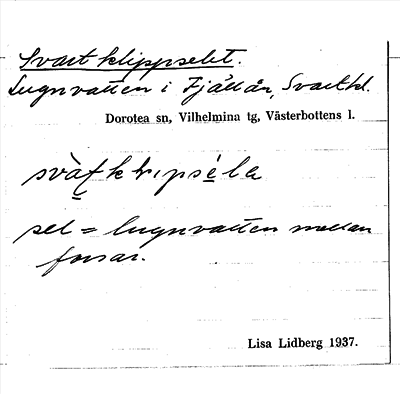 Svartklippselet.
Lugnvatten i Fjällån, Svartkl.
Dorotea sn, Vilhelmina tg, Västerbottens l.
sel = lugnvatten mellan
forsar.
Lisa Lidberg 1937.